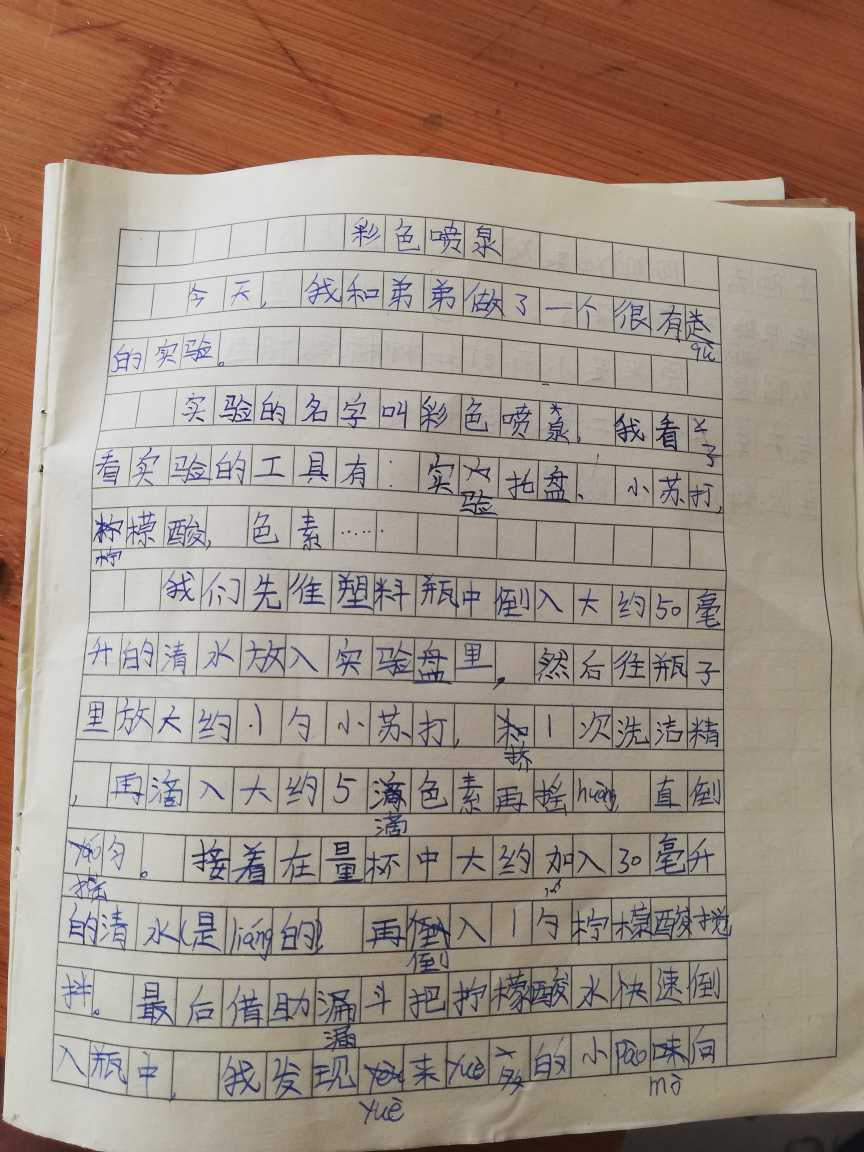 彩色喷泉
今天，我和弟弟做了一个很有趣
qù
的实验。
实验的名字叫彩色喷泉，我看了
看实验的工具有：实验托盘、小苏打，
柠檬酸，色素……
我们先往塑料瓶中倒入大约50毫
升的清水放入实验盘里，然后往瓶子
里放大约1勺小苏打，挤1次洗洁精
，再滴入大约5滴色素再摇huàng，直倒
摇匀。接着在量杯中大约加入30毫升
的清水（是liáng的）再倒入1勺柠檬酸搅
拌。最后借助漏斗把拧檬酸水快速倒
入瓶中，我发现yuè来yuè多的小pào mò向